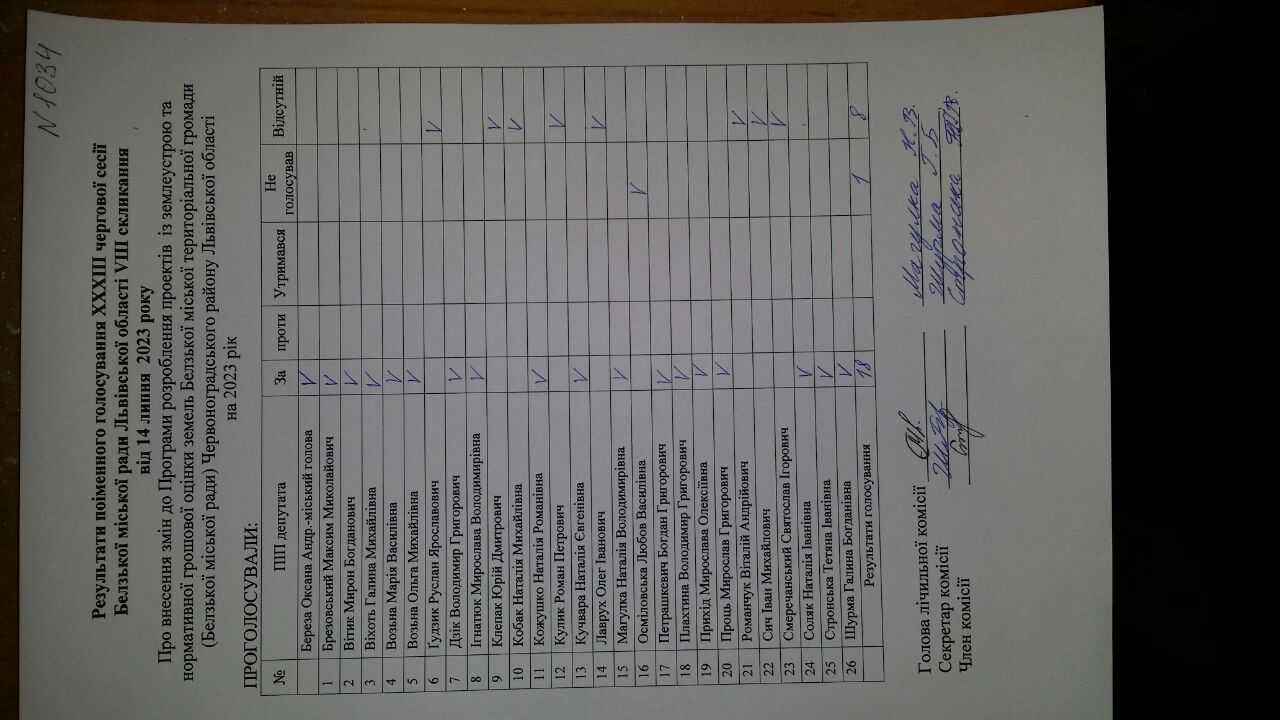 N 1034
Результати поіменного голосування XXXIII чергової сесії
Белзької міської ради Львівської області VIII скликання
від 14 липня 2023 року
Про внесення змін до Програми розроблення проектів із землеустрою та
нормативної грошової оцінки земель Белзької міської територіальної громади
(Белзької міської ради) Червоноградського району Львівської області
на 2023 рік
ПРОГОЛОСУВАЛИ:
№ ПІП депутата За проти Утримався Не голосував Відсутній
Береза Оксана Андр.-міський голова V
1 Брезовський Максим Миколайович V
2 Вітик Мирон Богданович V
3 Віхоть Галина Михайлівна V
4 Возьна Марія Василівна V
5 Возьна Ольга Михайлівна V
6 Ґудзик Руслан Ярославович V
7 Дзік Володимир Григорович V
8 Ігнатюк Мирослава Володимирівна V
9 Клепак Юрій Дмитрович V
10 Кобак Наталія Михайлівна V
11 Кожушко Наталія Романівна V
12 Кулик Роман Петрович V
13 Кучвара Наталія Євгенівна V
14 Лаврух Олег Іванович V
15 Магулка Наталія Володимирівна V
16 Осміловська Любов Василівна V
17 Петрашкевич Богдан Григорович V
18 Плахтина Володимир Григорович V
19 Прихід Мирослава Олексіївна V
20 Проць Мирослав Григорович V
21 Романчук Віталій Андрійович V
22 Сич Іван Михайлович V
23 Смеречанський Святослав Ігорович V
24 Соляк Наталія Іванівна V
25 Стронська Тетяна Іванівна V
26 Щурма Галина Богданівна V
Результати голосування 18 1 8
Голова лічильної комісії Магулка Н.В.
Секретар комісії Щурма Г.Б
Член комісії